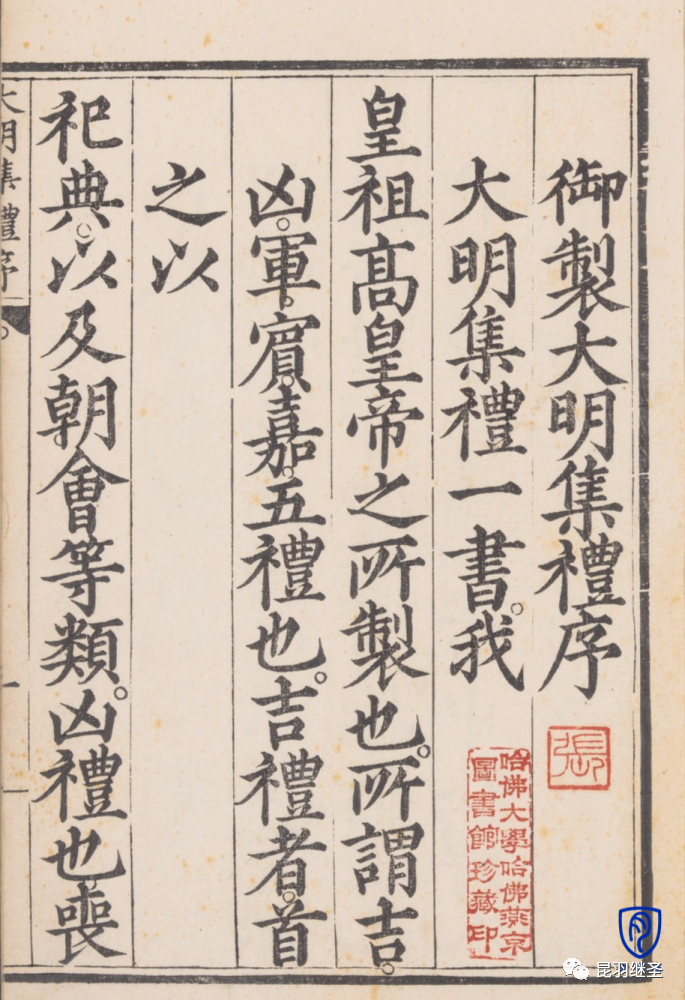 御製大明集禮序
大明集禮一書。我
皇祖高皇帝之所製也。所謂吉。
凶。軍。賔。嘉。五禮也。吉禮者。首
之以
祀典。以及朝會等類。凶禮也。喪
大明集禮序
一
張
哈佛大學哈佛燕京
圖書館珍藏印
昆羽继圣